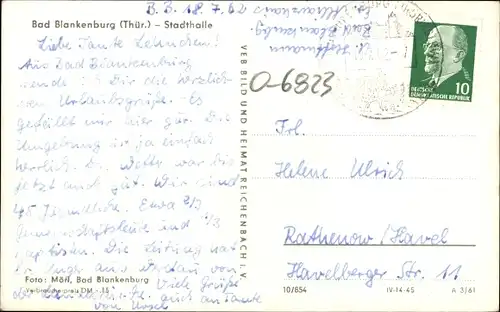 Bad Blankenburg (Thür.) — Stadthalle
B. B. 18. 7. 62
Liebe Tante Lehnchen!
Aus Bad Blankenburg
sende ich Dir die herzlich-
sten Urlaubsgrüße. Es
gefällt mir hier gut. Die
Umgebung ist ja einfach
herrlich. Das Wetter war bis
jetzt auch gut. Wir sind
45 Jugendliche. Etwa 2/3
Gemeinschaftsleute und 1/3
Baptisten. Die Leitung hat
Viele Grüße
auch an Tante
von Ursel
Foto: Mörl, Bad Blankenburg
Verbraucherpreis DM -,15
VEB BILD UND HEIMAT REICHENBACH i. V.
Bad Blankenburg
O-6823
10
DEUTSCHE
DEMOKRATISCHE REPUBLIK
Frl.
Helene Ulrich
Rathenow/Havel
Havelberger Str. 11
10/854 IV-14-45 A 3/61